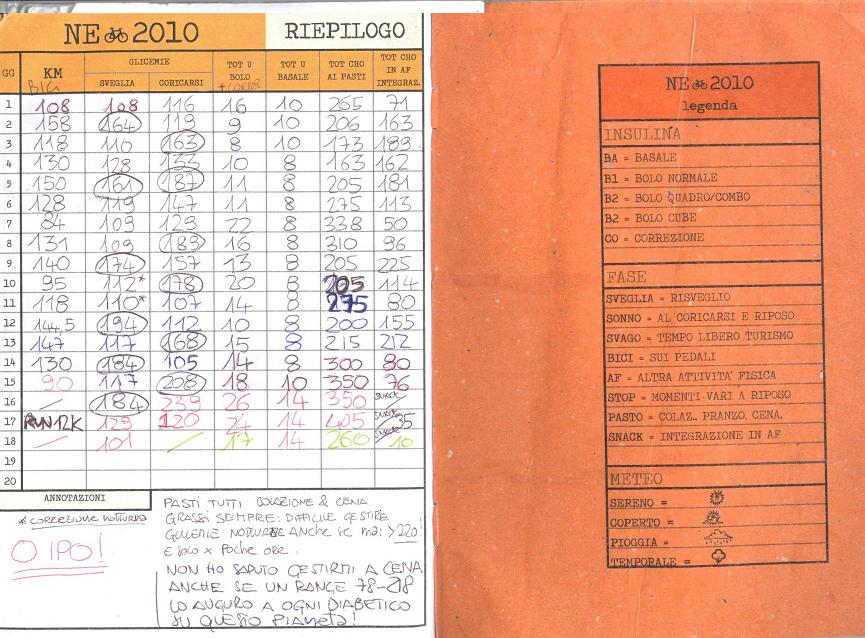 NE 2010 RIEPILOGO
GG KM BICI GLICEMIE SVEGLIA CORICARSI TOT U BOLO + CORREZ TOT U BASALE TOT CHO AI PASTI TOT CHO IN AF INTEGRAZ.
1 108 108 116 16 10 265 71
2 158 164 119 9 10 206 163
3 118 110 163 8 10 173 189
4 130 128 133 10 8 163 162
5 150 161 187 11 8 205 181
6 128 119 147 11 8 275 113
7 84 109 129 22 8 338 50
8 131 109 189 16 8 310 96
9 140 174 157 13 8 205 225
10 95 112* 178 20 8 205 114
11 118 110* 107 14 8 275 80
12 144,5 194 112 10 8 200 155
13 147 117 168 15 8 215 212
14 130 184 105 14 8 300 80
15 90 117 208 18 10 350 76
16 / 184 239 26 14 350 SNACK
17 RUN 12K 129 120 24 14 405 SNACK 35
18 / 101 / 17 14 260 SNACK 10
19
20
ANNOTAZIONI
* CORREZIONE NOTTURNA
O IPO!
PASTI TUTTI COLAZIONE & CENA
GRASSI SEMPRE: DIFFICILE GESTIRE
GLICEMIE NOTTURNE ANCHE SE MAI > 220!
E SOLO X POCHE ORE.
NON HO SAPUTO GESTIRMI A CENA
ANCHE SE UN RANGE 78-218
LO AUGURO A OGNI DIABETICO
SU QUESTO PIANETA!
NE 2010
legenda
INSULINA
BA = BASALE
B1 = BOLO NORMALE
B2 = BOLO QUADRO/COMBO
B2 = BOLO CUBE
CO = CORREZIONE
FASE
SVEGLIA = RISVEGLIO
SONNO = AL CORICARSI E RIPOSO
SVAGO = TEMPO LIBERO TURISMO
BICI = SUI PEDALI
AF = ALTRA ATTIVITA' FISICA
STOP = MOMENTI VARI A RIPOSO
PASTO = COLAZ., PRANZO, CENA,
SNACK = INTEGRAZIONE IN AF
METEO
SERENO =
COPERTO =
PIOGGIA =
TEMPORALE =